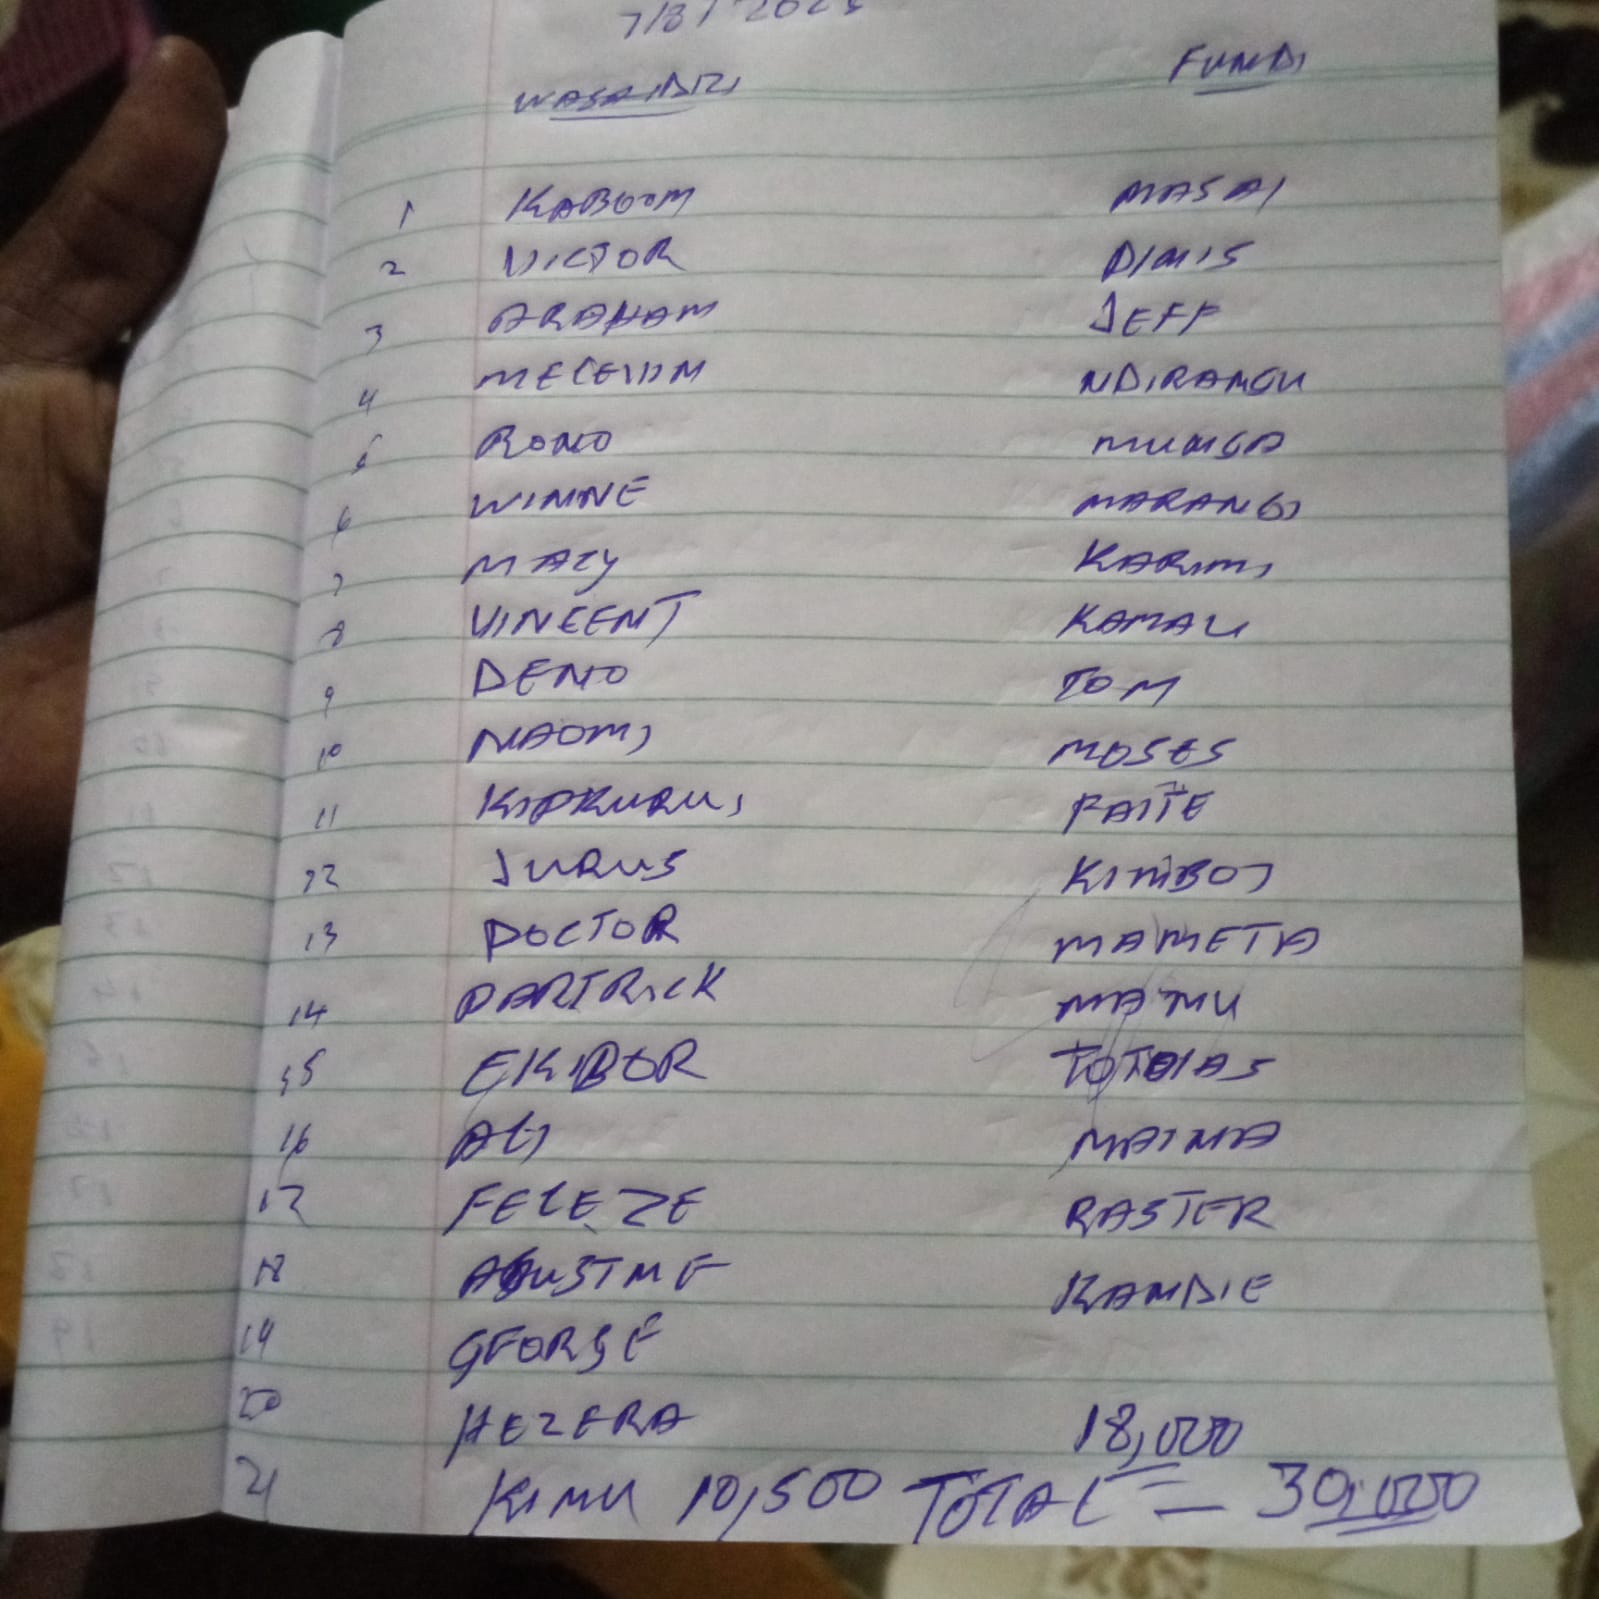 7/8/2023
WASAIDIZI FUNDI
1 KABOOM MASAI
2 VICTOR DIMIS
3 ARAHAM JEFF
4 MECEIIM NDIRANGU
5 RONO MUNGA
6 WINNE MARANGI
7 MACY KARIMI
8 VINCENT KAMAU
9 DENO TOM
10 NAOMI MOSES
11 KIPKURUI FAITE
12 JURUS KIMBOI
13 DOCTOR MAMETA
14 PARTRICK MAMU
15 EKIBOR TOTOIAS
16 ALI MAINA
17 FELEZE RASTER
18 AGUSTINE KANDIE
19 GEORGE
20 HEZERA 18,000
21 KIMU 10,500 TOTAL = 30,000